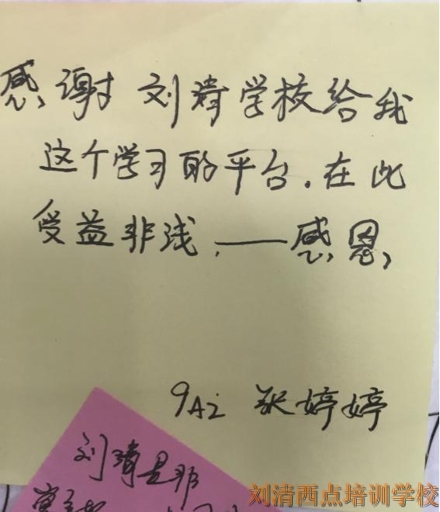 感谢刘清学校给我
这个学习的平台.在此
受益非浅.——感恩
9A2 张婷婷
刘清是非
刘清西点培训学校